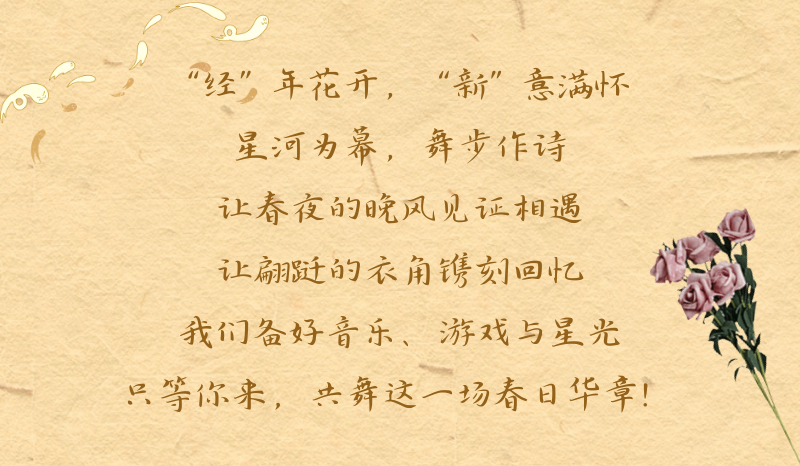 “经”年花开，“新”意满怀
星河为幕，舞步作诗
让春夜的晚风见证相遇
让翩跹的衣角镌刻回忆
我们备好音乐、游戏与星光
只等你来，共舞这一场春日华章！